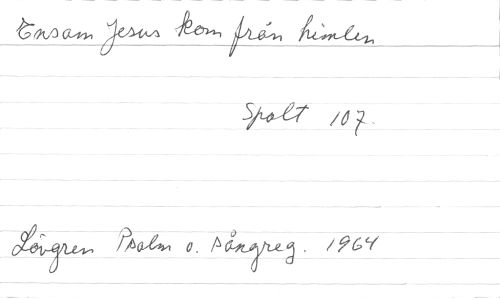 Ensam Jesus kom från himlen
Spalt 107.
Lövgren Psalm o. sångreg. 1964